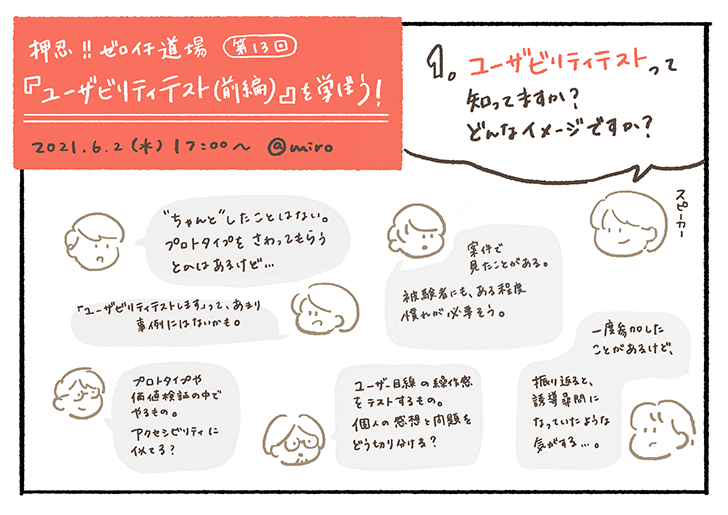 押忍!! ゼロイチ道場 第13回
『ユーザビリティテスト(前編)』を学ぼう!
2021.6.2(水) 17:00〜 @miro
1. ユーザビリティテストって
知ってますか?
どんなイメージですか?
スピーカー
"ちゃんと"したことはない。
プロトタイプを さわってもらう
とかはあるけど…
案件で
見たことがある。
被験者にも、ある程度
慣れが必要そう。
「ユーザビリティテストします」って、あまり
事例にはないかも。
一度参加した
ことがあるけど、
振り返ると、
誘導尋問に
なっていたような
気がする…。
プロトタイプや
価値検証の中で
やるもの。
アクセシビリティに
似てる?
ユーザー目線の操作感
をテストするもの。
個人の感想と問題を
どう切り分ける?